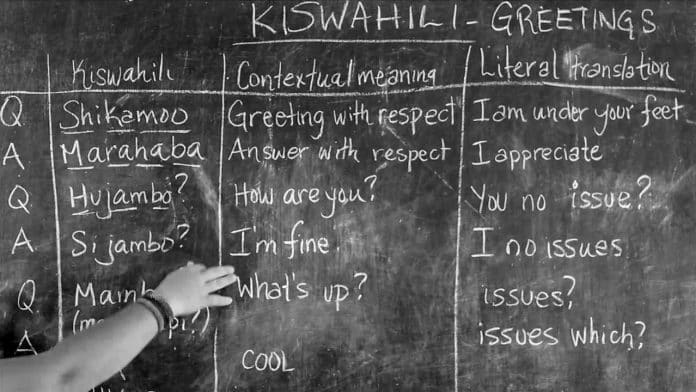 KISWAHILI - GREETINGS
Kiswahili Contextual meaning Literal translation
Q Shikamoo Greeting with respect I am under your feet
A Marahaba Answer with respect I appreciate
Q Hujambo? How are you? You no issue?
A Sijambo? I'm fine. I no issues
Q What's up? issues?
issues which?
A
COOL